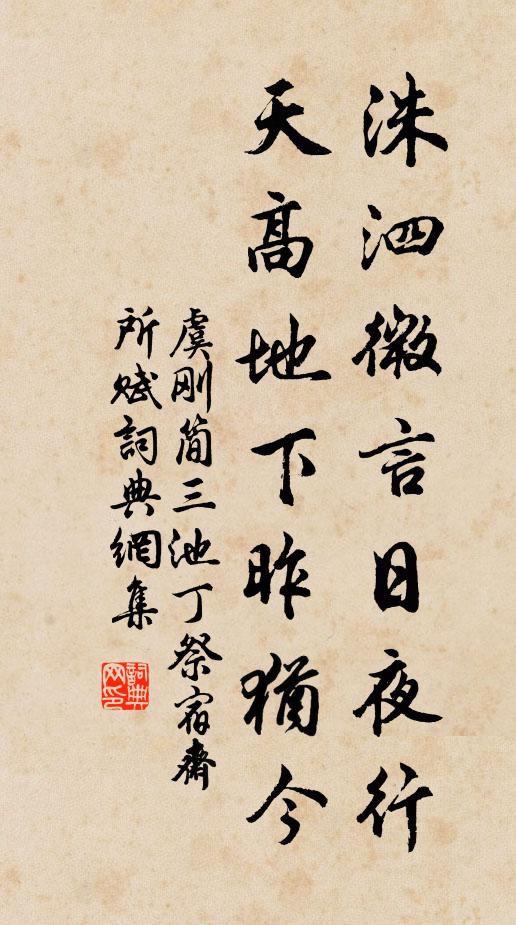 洙泗微言日夜行
天高地下昨猶今
虞刚简三池丁祭宿齋
所賦詞典網集
詞典
网印